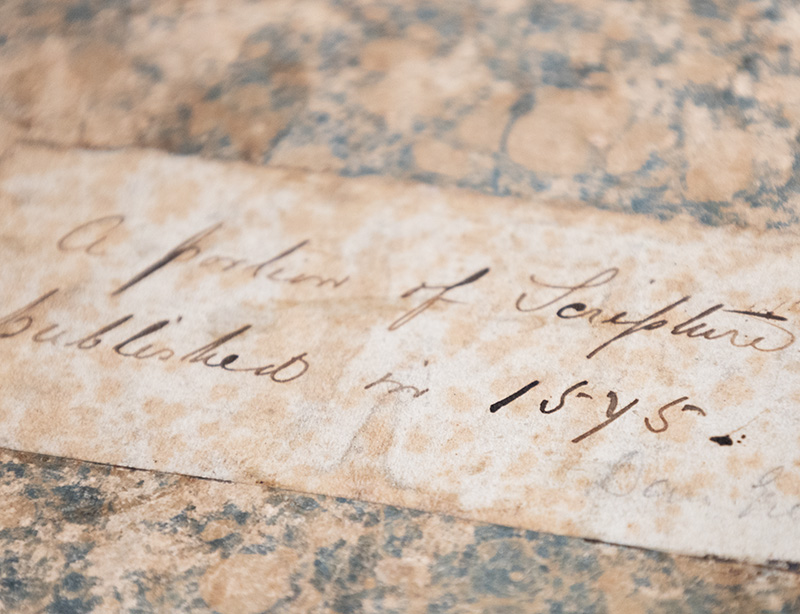 A portion of Scripture
published in 1575.